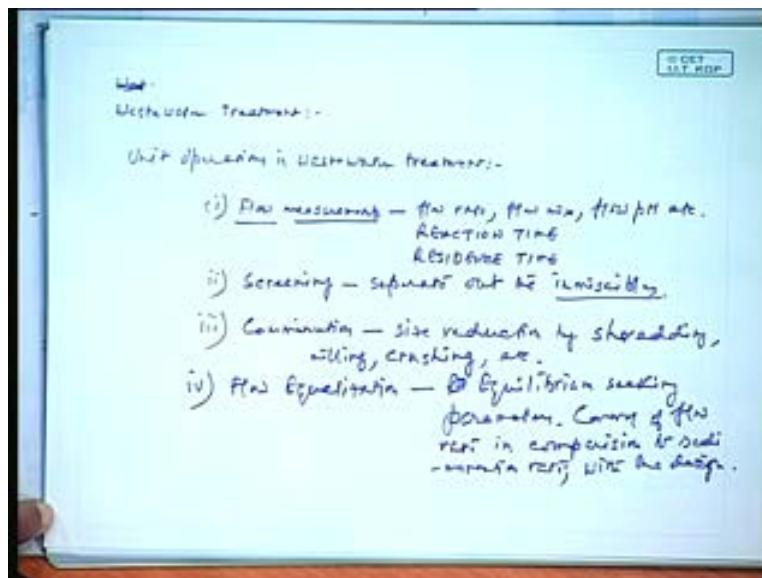 © CET
I.I.T. KGP
Wastewater Treatment:-
Unit operation in wastewater treatment:-
(i) Flow measurement — flow rate, flow, flow pH etc.
REACTION TIME
RESIDENCE TIME
ii) Screening — separate out the immiscibles
iii) Comminution — size reduction by shredding,
milling, crushing, etc.
iv) Flow Equalization — Equilibrium seeking
parameter. of flow
rate in comparision to sedi
-mentation rate, with the design.